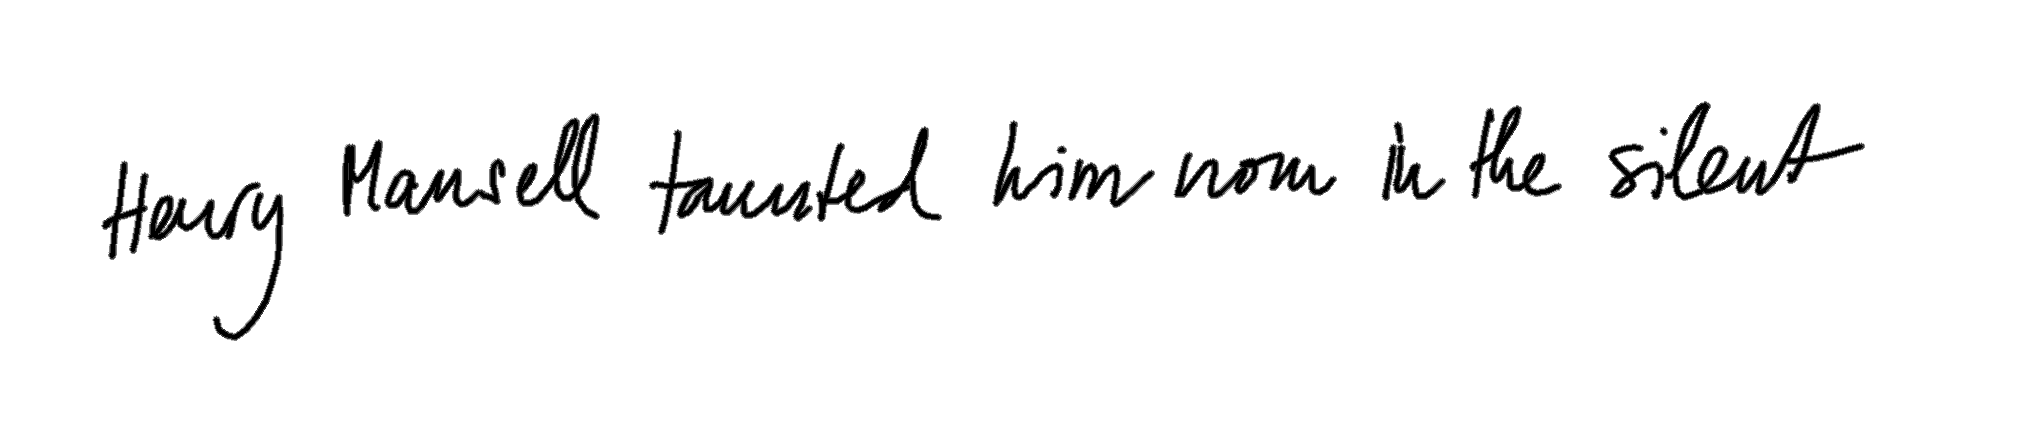 Henry Mansell taunted him now in the silent